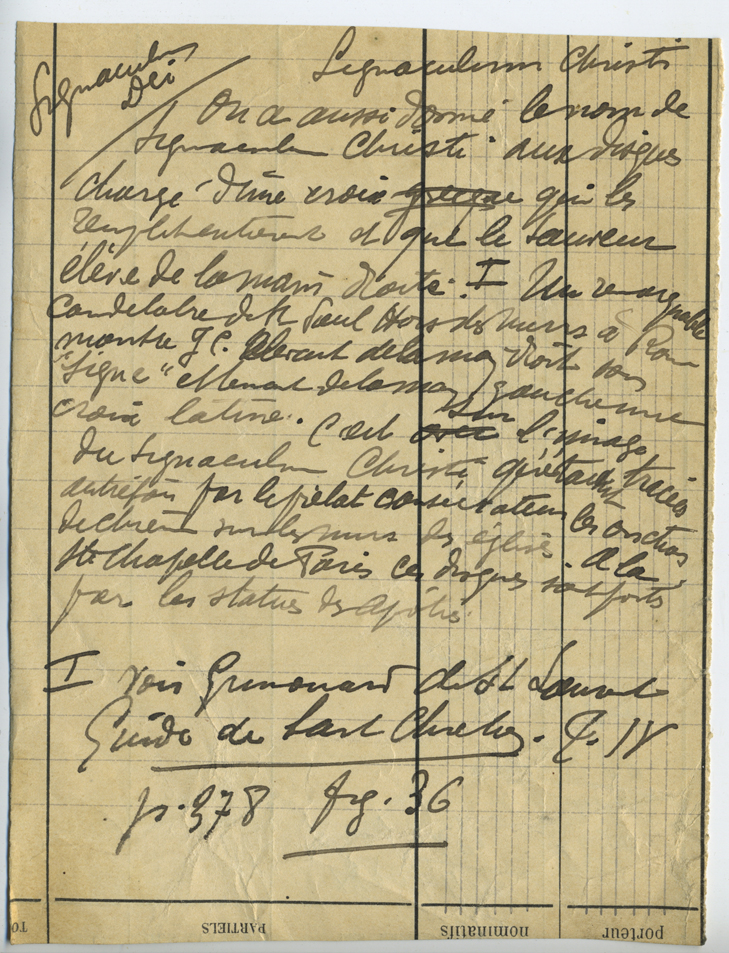 Signaculum
Dei
Signaculum Christi
On a aussi donné le nom de
Signaculum Christi aux disques
chargé d'une croix grecque qui les
remplit entièrement et que le Sauveur
élève de la main droite. I Un remarquable
candélabre de St Paul Hors des murs à Rome
montre J. C. élevant de la main droite son
"signe" et tenant de la main gauche une
croix latine. C'est avec sur l'image
du Signaculum Christi qu'étaient tracées
autrefois par le prélat consécrateur les onctions
de chrême sur les murs des églises. A la
Ste Chapelle de Paris ces disques sont portés
par les statues des apôtres.
I voir Grimouard de St Laurent
Guide de l'art Chretien. T. IV
p. 378 fig. 36
TO
PARTIELS
nominatifs
porteur